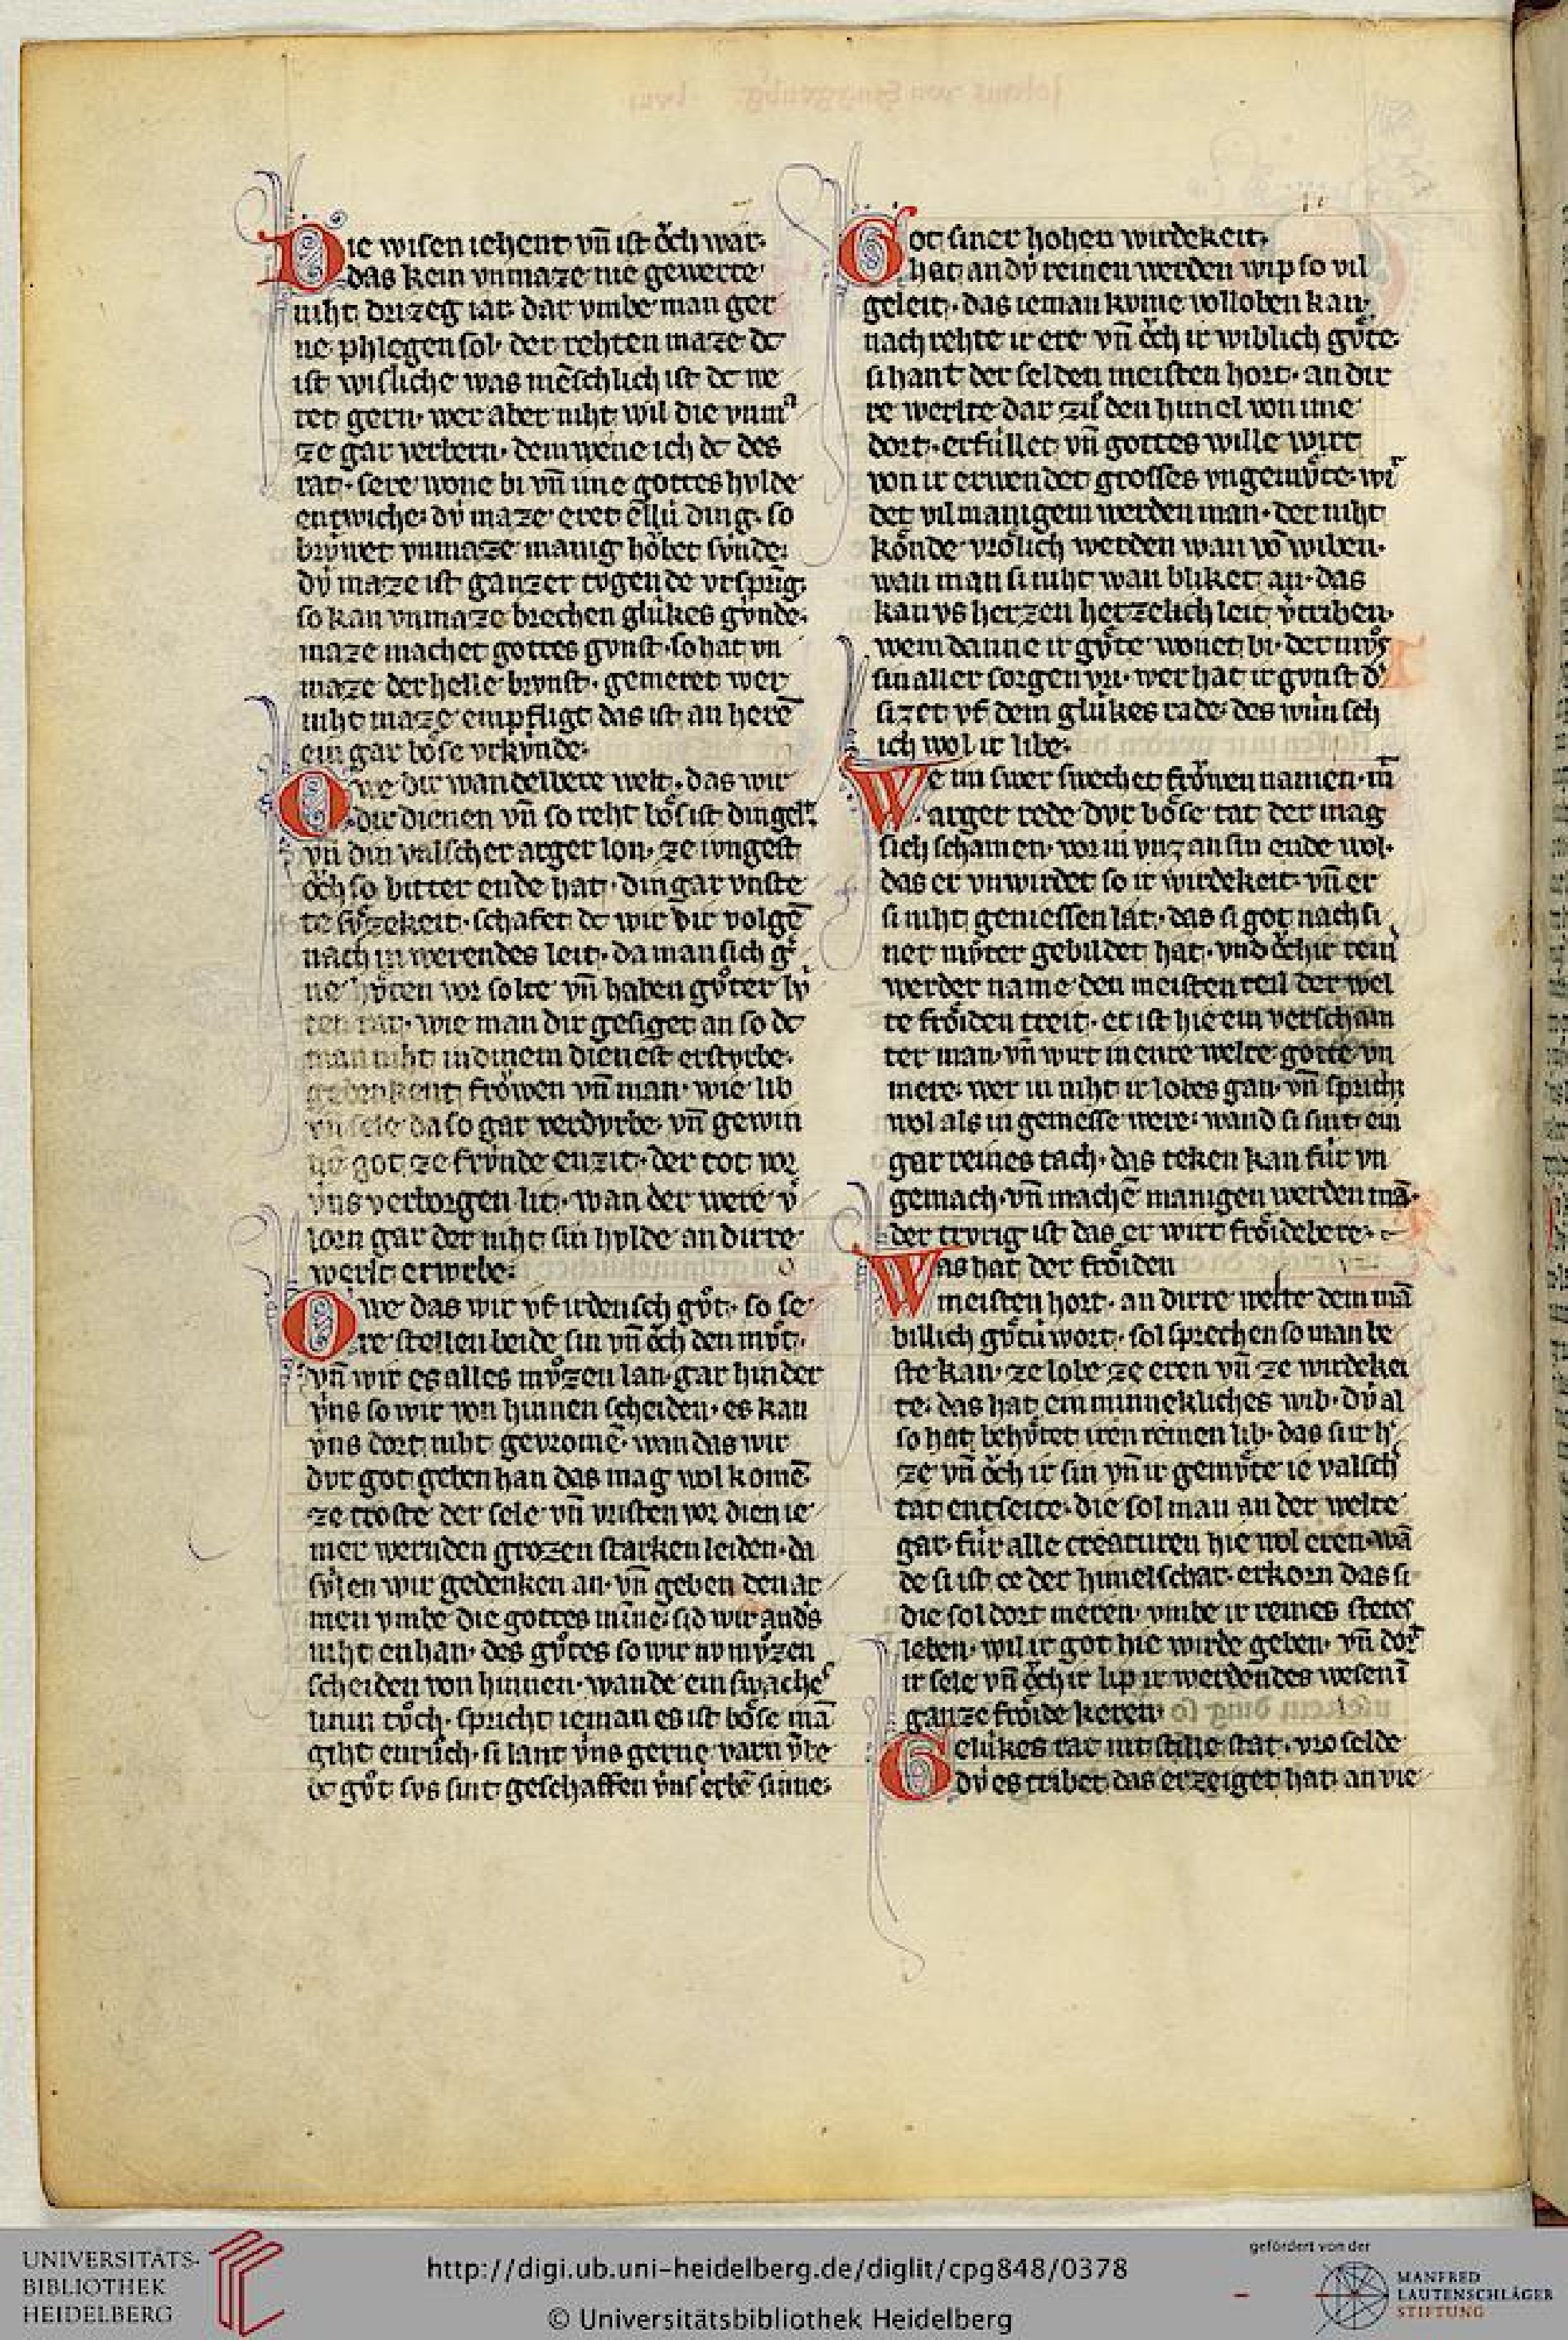 Die wisen iehent vn̄ ist ǒch war·
das kein vnmaze nie gewerte
niht drizeg iar· dar vmbe man ger
ne phlegen sol· der rehten maze dc
ist wisliche was mēschlich ist dc ne
ret gern· wer aber niht wil die vnmᵃ
ze gar verbern· dem wene ich dc des
rat· sere wone bi vn̄ ime gottes hvlde
entwiche· dv̍ maze eret ellv̍ ding· so
brv̍wet vnmaze manig hǒbet sv̍nde·
dv̍ maze ist ganzer tvgende vrsprūg·
so kan vnmaze brechen glu̍kes gv̍nde·
maze machet gottes gvnst· so hat vn
maze der helle brvnst· gemeret wer
niht maze empfligt das ist an herē
ein gar bo̍se vrkv̍nde·
Owe dir wandelbere welt· das wir
dir dienen vn̄ so reht bo̍s ist din gelt·
vn̄ din valscher arger lon· ze ivngest
ǒch so bitter ende hat· din gar vnste
te sv̍zekeit· schafet dc wir dir volgē
nach in werendes leit· da man sich gˢ
ne hv̍ten vor solte vn̄ haben gv̊ter lv̍
ten rat· wie man dir gesiget an so dc
man niht in dinem dienest erstvrbe·
gedenkent frǒwen vn̄ man· wie lib
vn̄ sele da so gar verdvrbe· vn̄ gewin
nē got ze frv̍nde enzit· der tot vor
v̍ns verborgen lit· wan der were v̍
lorn gar der niht sin hvlde an dirre
werlt erwrbe·
Owe das wir vf irdensch gv̊t· so se
re stellen beide sin vn̄ ǒch den mv̊t·
vn̄ wir es alles mv̊zen lan· gar hinder
v̍ns so wir von hinnen scheiden· es kan
v̍ns dort niht gevromē· wan das wir
dvr got geben han das mag wol komē
ze troste der sele vn̄ vristen vor dien ie
mer wernden grozen starken leiden· da
sv̍len wir gedenken an· vn̄ geben den ar
men vmbe die gottes minne· sid wir andˢs
niht enhan· des gv̊tes so wir nv mv̍zen
scheiden von hinnen· wande ein swaches
linin tv̊ch· spricht ieman es ist bo̍se mā
giht enrůch· si lant v̍ns gerne varn v̍be
dc gv̊t svs sint geschaffen v̍nsˢ erbē sinne·
Got siner hohen wirdekeit·
hat an dv̍ reinen werden wip so vil
geleit· das ieman kvme volloben kan·
nach rehte ir ere vn̄ ǒch ir wiblich gv̍te·
si hant der selden meisten hort· an dir
re werlte dar zů den himel von ime
dort· erfu̍llet vn̄ gottes wille wirt
von ir erwendet grosses vngemv̍te· wiʳ
det vil manigem werden man· der niht
ko̍nde vro̍lich werden wan vō wiben·
wan man si niht wan bliket an· das
kan vs herzen herzelich leit v̍triben·
wem danne ir gv̍te wonet bi· der mv̊s
sin aller sorgen vri· wer hat ir gvnst dˢ
sizet vf dem glu̍kes rade· des wu̍nsch
ich wol ir libe·
We im swer swechet frǒwen namen· m̄
arger rede dvr bo̍se tat der mag
sich schamen· vor in vnz an sin ende wol·
das er vnwirdet so ir wirdekeit· vn̄ er
si niht geniessen lat· das si got nach si
ner mv̊ter gebildet hat· vnd ǒch ir rein
werder name den meisten teil der wel
te fro̍iden treit· er ist hie ein verscham
ter man· vn̄ wirt in enre welte gotte vn
mere· wer in niht ir lobes gan· vn̄ spricht
wol als in gemesse were· wand si sint ein
gar reines tach· das teken kan fu̍r vn
gemach· vn̄ machē manigen werden mā·
der trvrig ist das er wirt fro̍idebere·
Was hat der fro̍iden
meisten hort· an dirre welte dem mā
billich gv̊tu̍ wort· sol sprechen so man be
ste kan· ze lobe ze eren vn̄ ze wirdekei
te· das hat ein minnekliches wib· dv̍ al
so hat behv̍tet iren reinen lib· das sin hˢ
ze vn̄ ǒch ir sin vn̄ ir gemv̍te ie valsch
tat entseite· die sol man an der welte
gar· fu̍r alle creaturen hie wol eren· wā
de si ist ce der himelschar· erkorn das si
die sol dort meren· vmbe ir reines stetes
leben· wil ir got hie wirde geben· vn̄ dort
ir sele vn̄ ǒch ir lip ir werdendes wesen ī
ganze fro̍ide keren·
Gelu̍kes rat nit stille stat· vro selde
dv̍ es tribet das erzeiget hat· an vie
UNIVERSITÄTS-
BIBLIOTHEK
HEIDELBERG
http://digi.ub.uni-heidelberg.de/diglit/cpg848/0378
© Universitätsbibliothek Heidelberg
gefördert von der
MANFRED
LAUTENSCHLÄGER
STIFTUNG